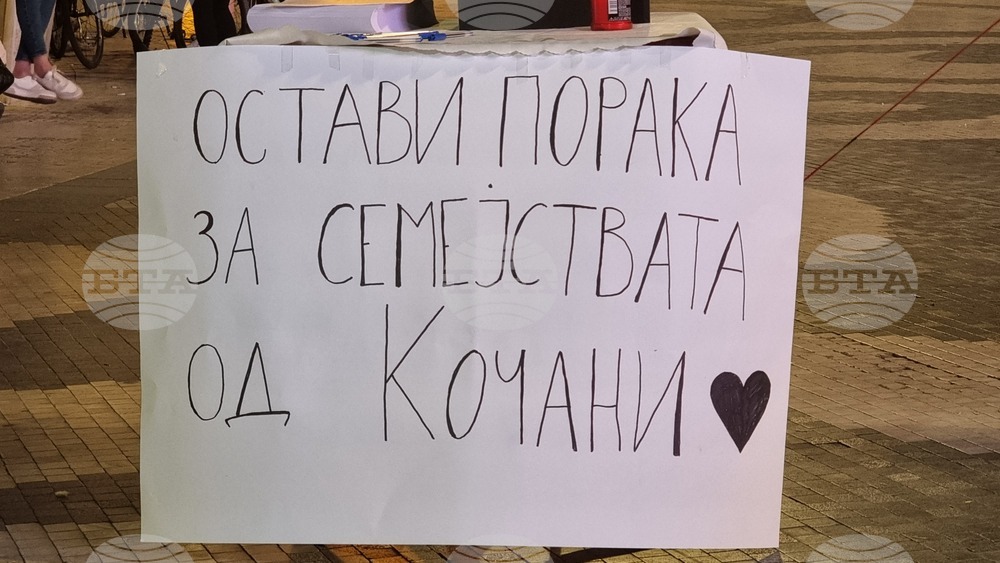 ОСТАВИ ПОРАКА
ЗА СЕМЕЈСТВАТА
ОД КОЧАНИ
БТА
БТА
БТА